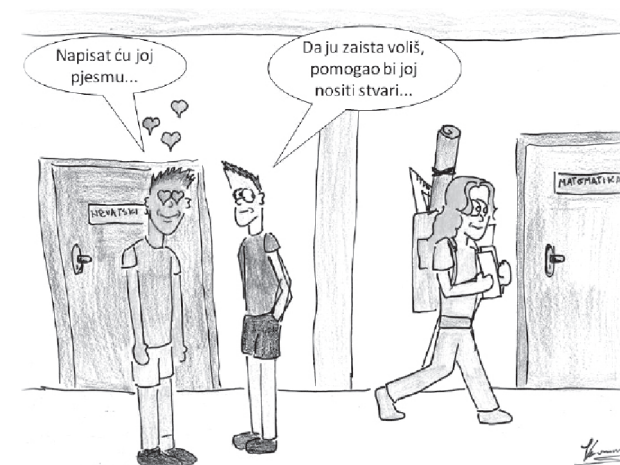 Napisat ću joj
pjesmu...
Da ju zaista voliš,
pomogao bi joj
nositi stvari...
HRVATSKI
MATEMATIKA